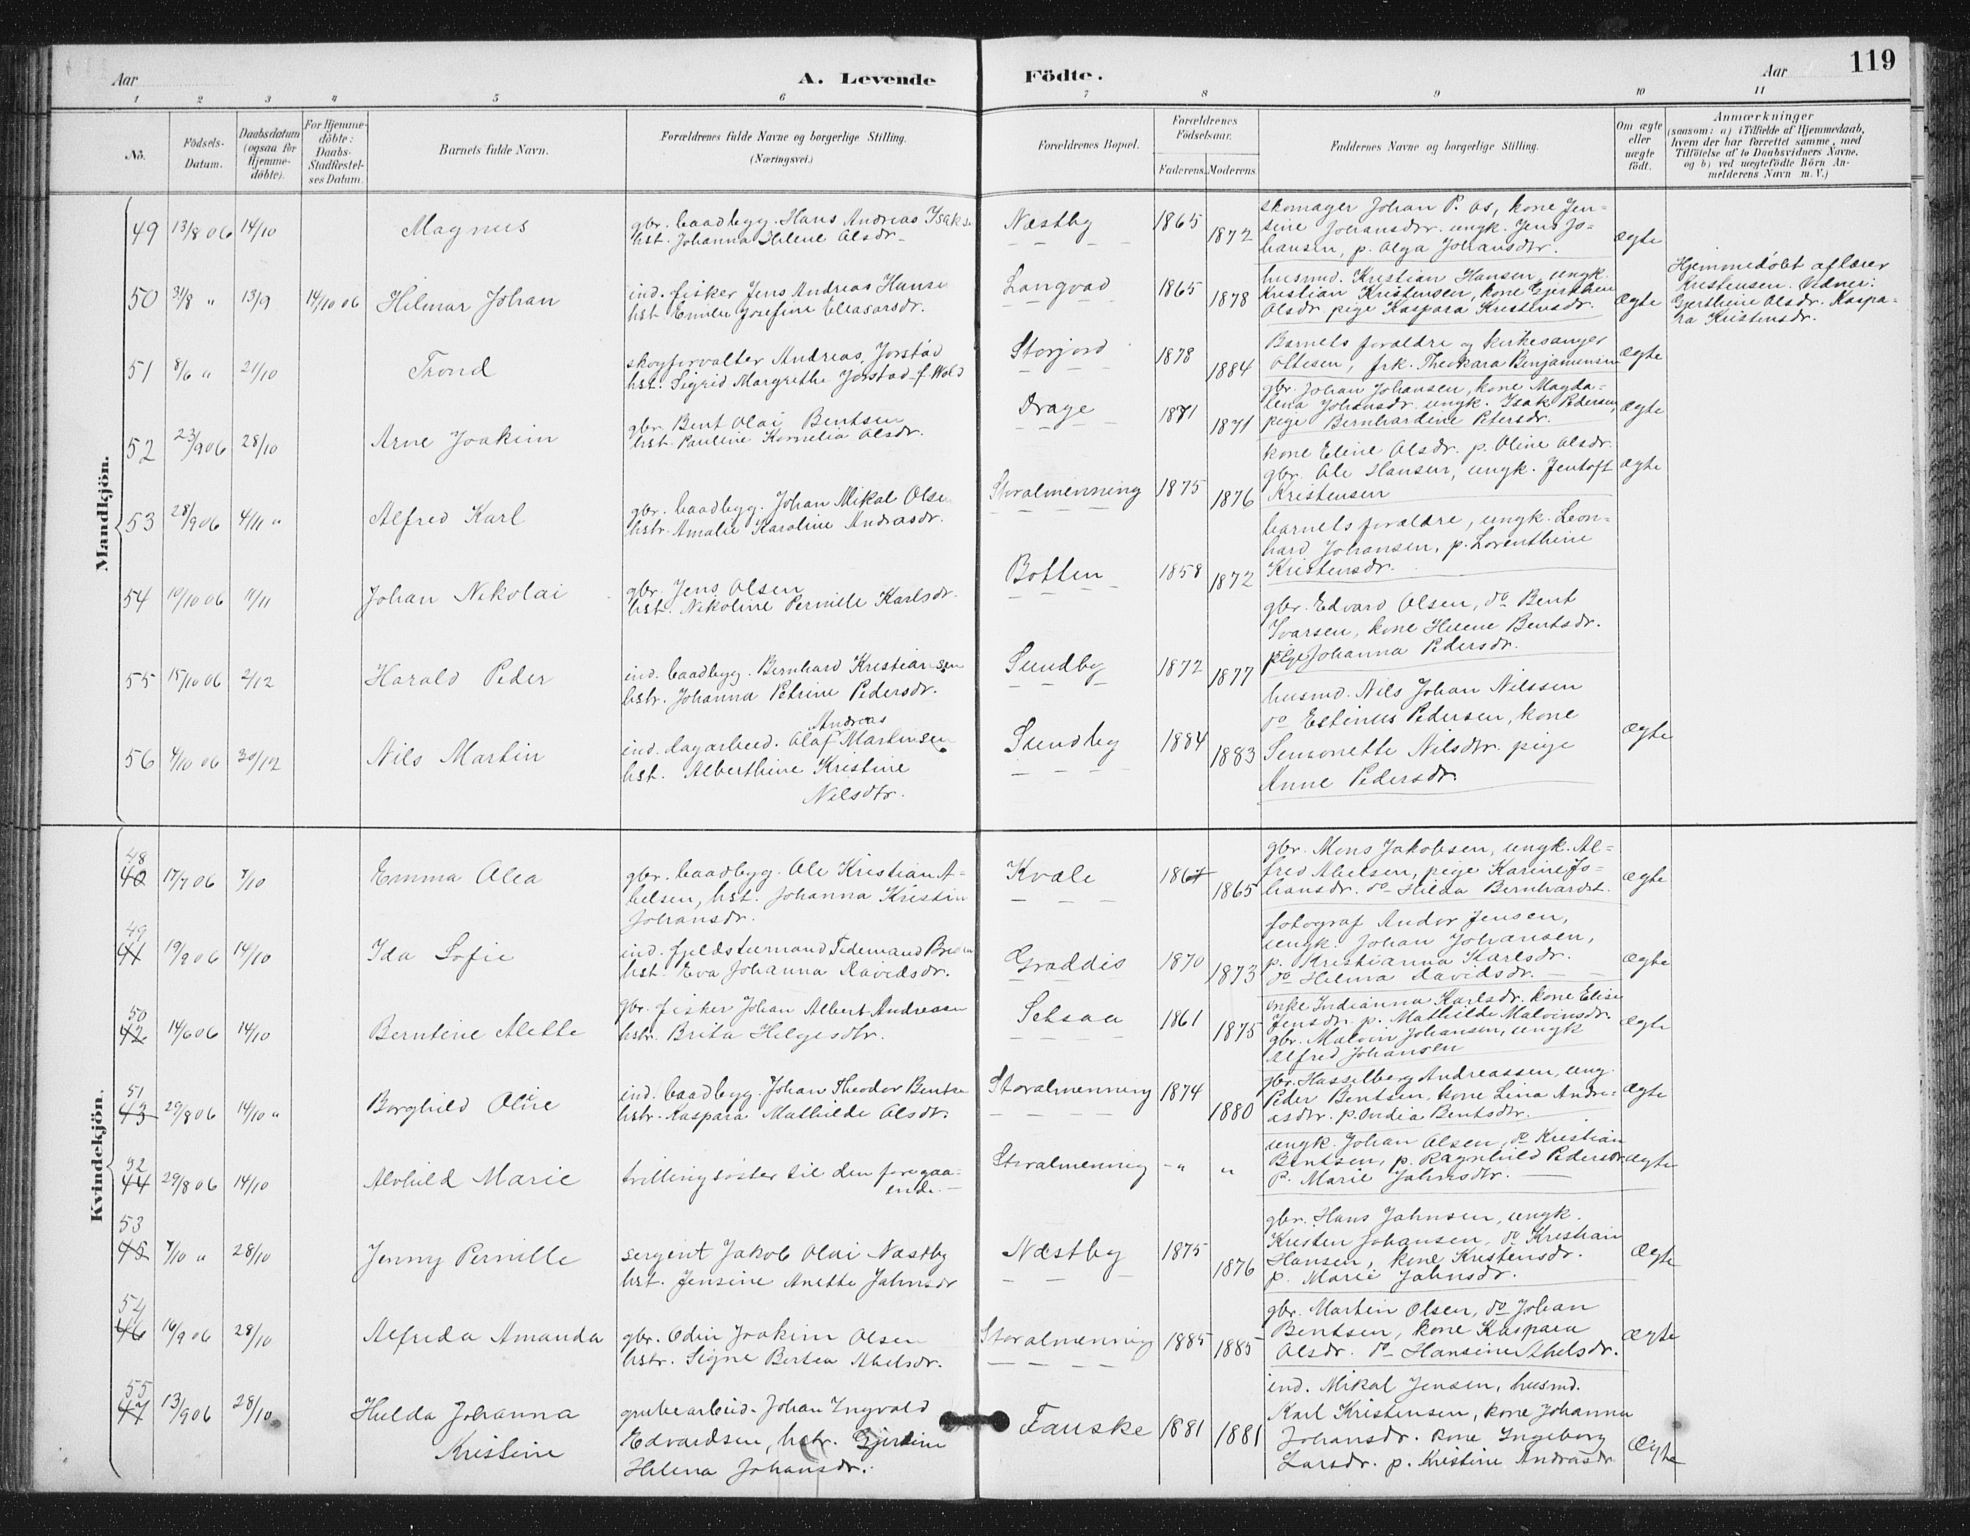 119
Aar
A. Levende
Födte.
Aar
1 2 3 4 5 6 7 8 9 10 11
No.
Födsels-Datum.
Daabsdatum (ogsaa for Hjemmedöbte).
For Hjemmedöbte: Daabs-Stadfæstelses Datum.
Barnets fulde Navn.
Forældrenes fulde Navne og borgerlige Stilling.
(Næringsvei.)
Forældrenes Bopæl.
Forældrenes Födselsaar.
Faderens. Moderens.
Faddernes Navne og borgerlige Stilling.
Om ægte eller uægte födt.
Anmærkninger
(saasom: a) i Tilfælde af Hjemmedaab,
hvem der har forrettet samme, med
Tilföielse af to Daabsvidners Navne,
og b) ved uægtefödte Börn Anmelderens Navn m. V.)
Mandkjön.
49 13/8 06 14/10 Magnus
gbr. baadbygg. Hans Andreas Isaks
hst. Johanna Helene Olsdr.
Næstby 1865 1872
skomager Johan P. os, kone Jen-
sine Johansdtr. ungk. Jens Jo-
hansen, p. Olga Johansdtr.
Ægte
50 31/8 " 13/9 14/10 06 Hilmar Johan
ind. fisker Jens Andreas Hanse
hst. Emilie Josefine Eleasarsdr.
Langvad 1865 1878
husmd. Kristian Hansen, ungk.
Kristian Kristensen, kone Gjerthine
Olsdr. pige Kaspara Kristensdr.
Ægte
Hjemmedøbt af lærer
Kristensen. Vidner:
Gjerthine Olsdr. Kaspa-
ra Kristensdr.
51 8/6 " 21/10 Trond
skogforvalter Andreas Jorstad
hst. Sigrid Margrethe Jorstad f. Wold
Storjord 1878 1884
Barnets forældre og kirkesanger
Ottesen, frk. Theokara Benjaminsen
Ægte
52 23/9 06 28/10 Arne Joakim
gbr. Bent Olai Bentsen
hst. Pauline Kornelia Olsdr.
Drage 1871 1871
gbr. Johan Johansen, kone Magda-
lena Johansdr. ungk. Isak Pedersen,
pige Bernhardine Petersdr.
Ægte
53 28/9 06 4/11 " Alfred Karl
gbr. baadbygg. Johan Mikal Olse
hstr. Amalie Karoline Andrasdr.
Storalmenning 1875 1876
kone Eline Olsdr. p. Oline Olsdr.
gbr. Ole Hansen, ungk. Jentoft
Kristensen
Ægte
54 19/10 06 11/11 Johan Nikolai
gbr. Jens Olsen
hst. Nikoline Pernille Karlsdr.
Botten 1858 1872
barnets forældre, ungk. Leon-
hard Johansen, p. Lorenthine
Kristensdr.
55 15/10 06 2/12 Harald Peder
ind. baadbygg. Bernhard Kristiansen
hstr. Johanna Petrine Pedersdr.
Sundby 1872 1877
gbr. Edvard Olsen, do Bent
Ivarsen, kone Helene Bentsdr.
pige Johanna Pedersdr.
56 4/10 06 30/12 Nils Martin
Andreas
ind. dagarbeid. Olaf Martinsen
hst. Alberthine Kristine
Nilsdtr.
Sundby 1884 1883
husmd. Nils Johan Nilssen
do Estinus Pedersen, kone
Simonette Nilsdtr. pige
Anne Pedersdr.
Ægte
Kvindekjön.
48
40 17/7 06 7/10 Emma Olea
gbr. baadbygg. Ole Kristian A-
belsen, hst. Johanna Kristin
Johansdr.
Kvale 1867 1865
gbr. Mons Jakobsen, ungk. Al-
fred Abelsen, pige Karine Jo-
hansdr. do Hilda Bernhardst.
Ægte
49
41 19/9 06 14/10 Ida Sofie
ind. fjeldstuemand Tidemand
hst. Eva Johanna Davidsdr.
Graddis 1870 1873
fotograf Andor Jensen,
ungk. Johan Johansen,
p. Kristianna Karlsdr.
do Helma Davidsdr.
Ægte
50
42 14/6 06 14/10 Berntine Alette
gbr. fisker Johan Albert Andreasen
hstr. Brita Helgesdtr.
Setsaa 1861 1875
enke Indianna Karlsdr. kone Elise
Jensdr. p. Mathilde Malvinsdr.
gbr. Malvin Johansen, ungk
Alfred Johansen
Ægte
51
43 29/8 06 14/10 " Borghild Oline
ind. baadbygg. Johan Theodor Bentse
hstr. Kaspara Mathilde Olsdtr.
Storalmenning 1874 1880
gbr. Hasselberg Andreassen, ung.
Peder Bentsen, kone Lina Andre-
asdtr. p. Ovidia Bentsdtr.
Ægte
52
44 29/8 06 14/10 Alvhild Marie
tvillingsøster til den foregaa-
ende.
Storalmennig - " "
ungk. Johan Olsen, do Kristian
Bentsen, p. Ragnhild Pedersdr
p. Marie Jahnsdtr.
Ægte
53
45 7/10 " 28/10 Jenny Pernille
sergent Jakob Olai Næstby
hst. Jensine Anette Jahnsdr
Næstby 1875 1876
gbr. Hans Jahnsen, ungk.
Kristen Johansen, do Kristian
Hansen, kone Kristensdr.
p. Marie Jahnsdr.
Ægte
54
46 16/9 06 28/10 Alfreda Amanda
gbr. Odin Joakim Olsen
hstr. Signe Bertea Abelsdr.
Storalmenning 1885 1885
gbr. Martin Olsen, do Johan
Bentsen, kone Kaspara
Olsdr. do Hansine Abelsdr.
Ægte
55
47 13/9 06 28/10 Hulda Johanna
Kristine
grubearbeid. Johan Ingvald
Edvardsen, hstr. Gjertine
Helena Johansdr.
Fauske 1881 1881
ind. Mikal Jensen, husmd.
Karl Kristensen, kone Johanna
Johansdr. kone Ingeborg
Larsdr. p. Kristine Andrasdr
Ægte